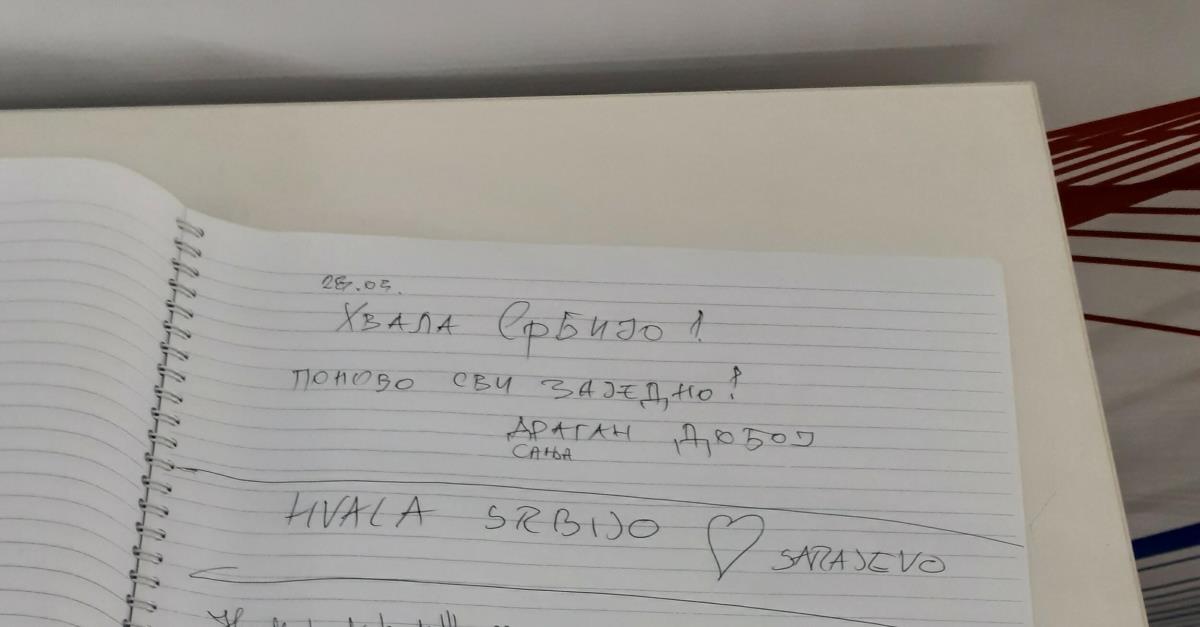 28.03.
ХВАЛА СРБИЈО!
ПОНОВО СВИ ЗАЈЕДНО!
ДРАГАН ДОБОЈ
САЊА
HVALA SRBIJO
SARAJEVO